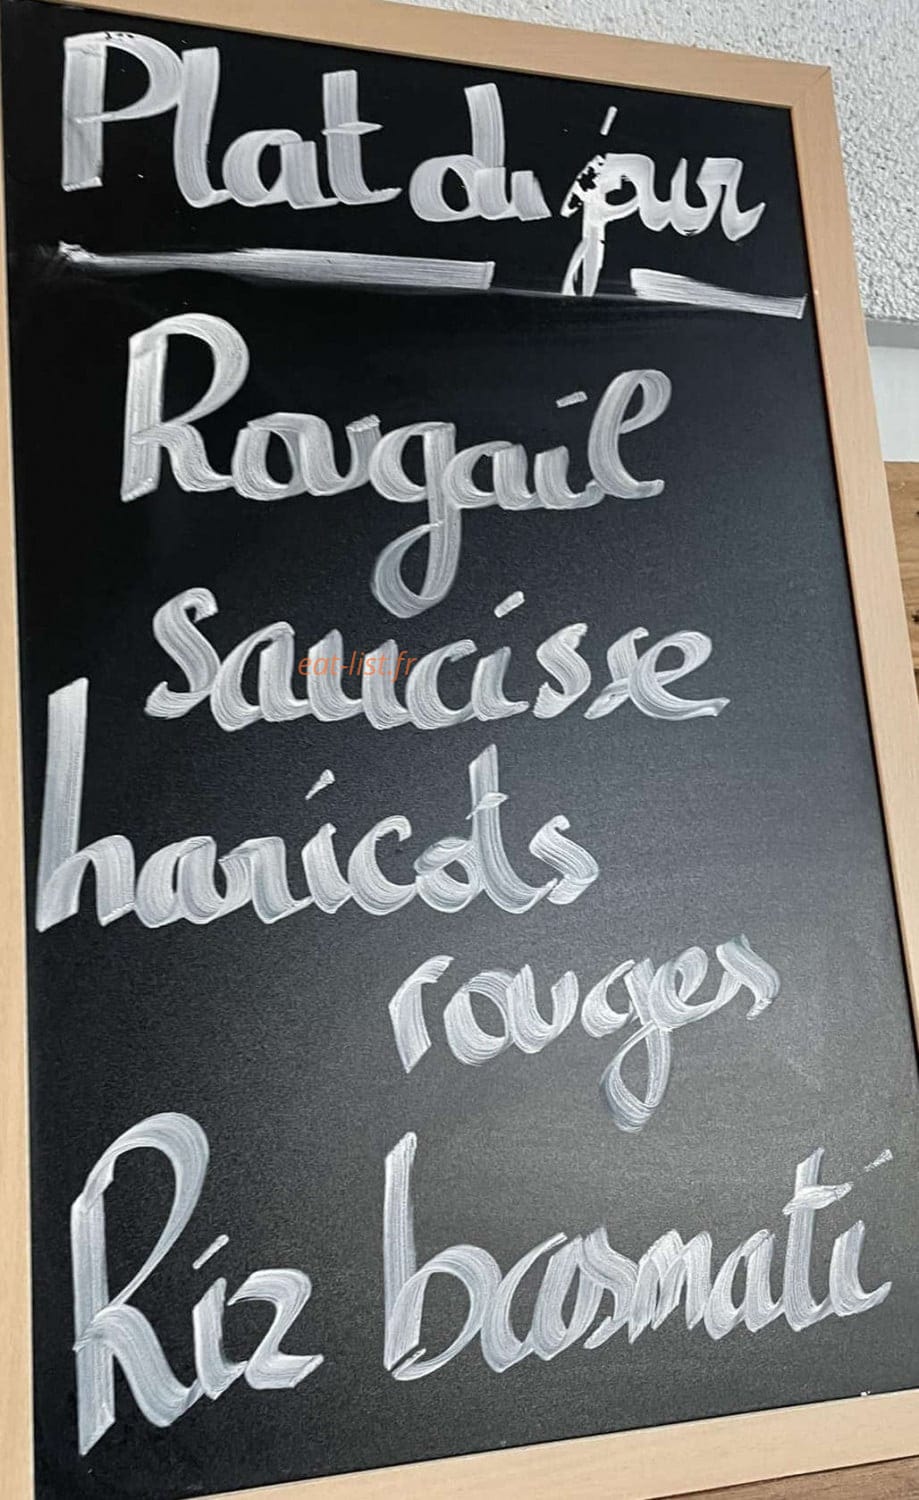 Plat du jour
Rougail
saucisse
eat-list.fr
haricots
rouges
Riz basmati